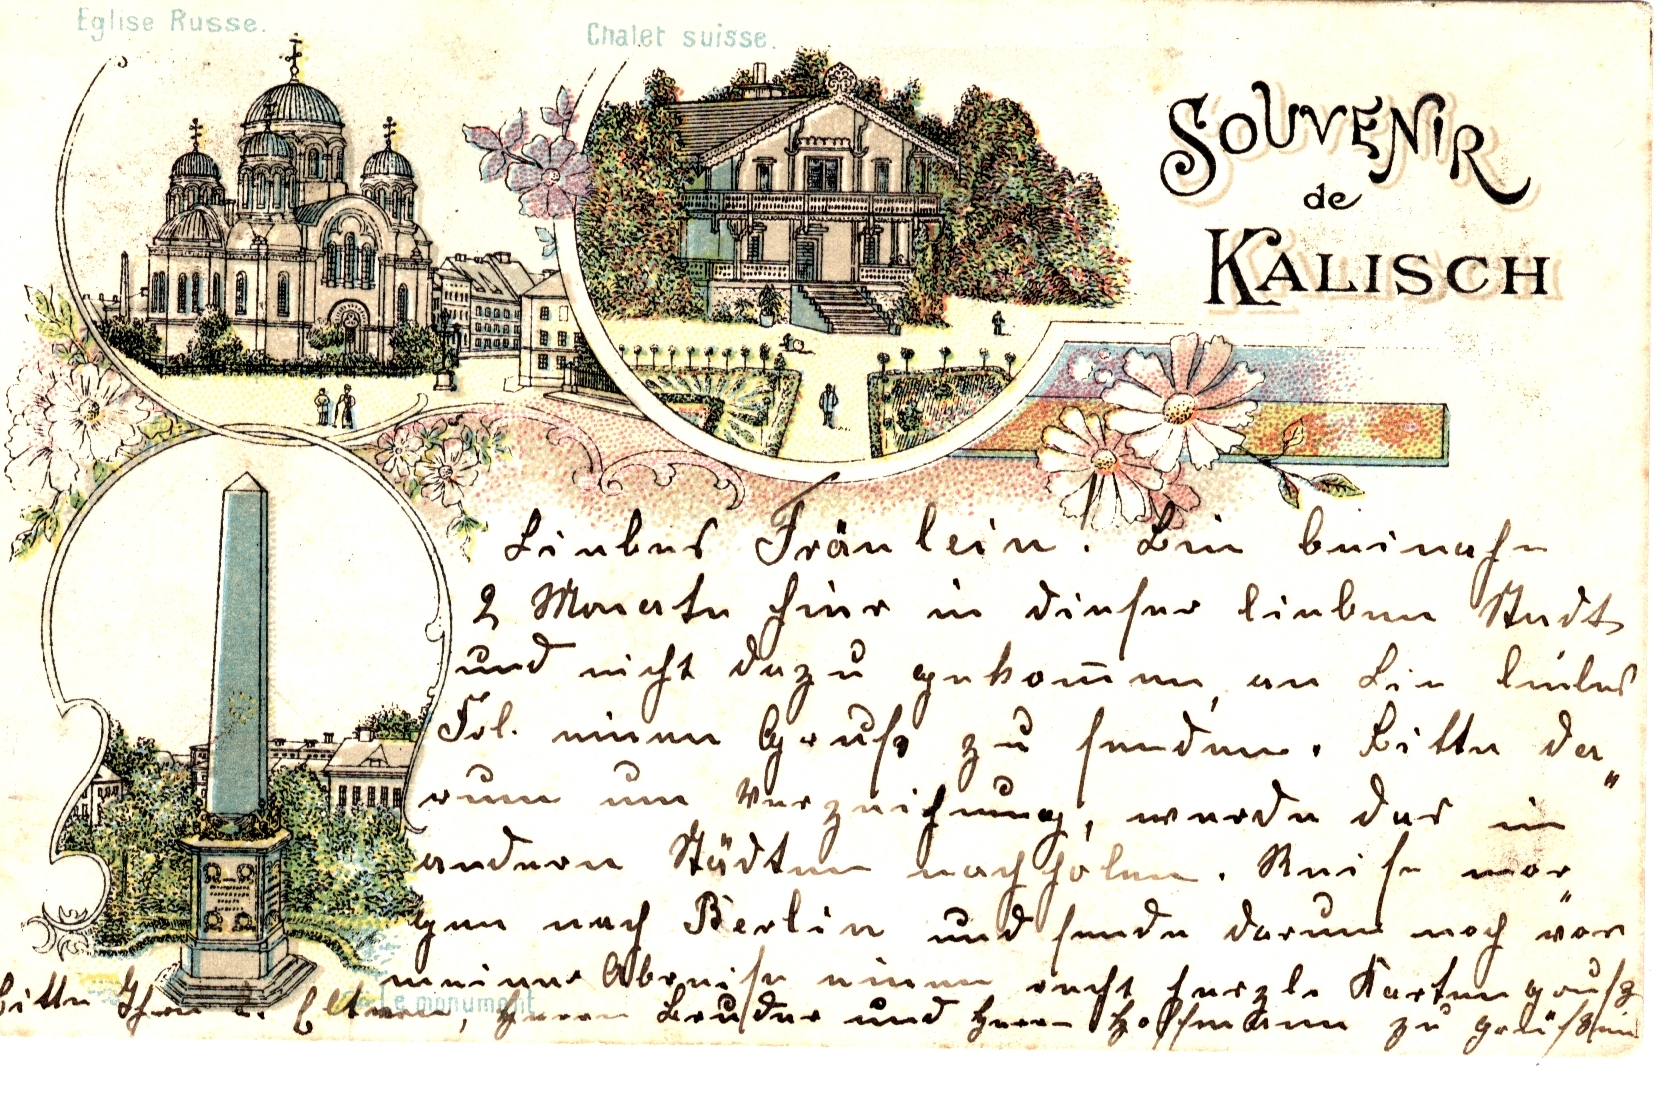 Eglise Russe.
Chalet suisse.
SOUVENIR
de
KALISCH
Liebes Fräulein. Bin beinahe
2 Monate hier in dieser lieben Stadt
und nicht dazu gekom̄en, an Sie liebes
Frl. einen Gruß zu senden. Bitte da
rum um Verzeihung, werde das in
andern Städten nachholen. Reise mor
gen nach Berlin und sende darum noch vor
meiner Abreise einen recht herzl. Kartengruß
Bitte Ihre l. Eltern, Herrn Bruder und Herrn Hoffmann zu grüßen
Le monument